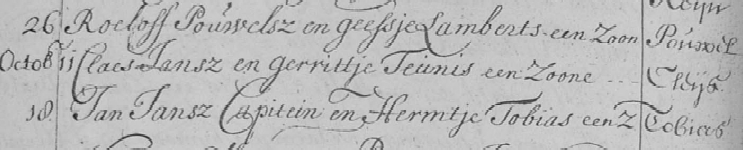 26 Roeloff Pouwelsz en geessje Lamberts een Zoon Pouwel
Octob 11 Claes Jansz en gerrittje Teunis een Zoone Cleijs
18 Jan Jansz Capitein en Hermtje Tobias een Z Tobias